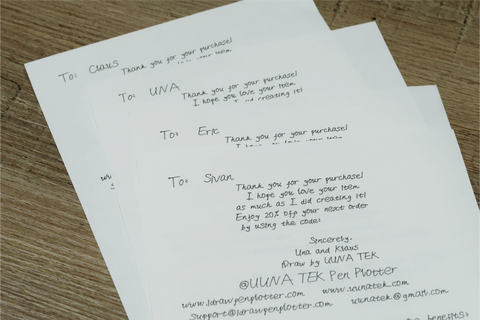 To: Claus
Thank you for your purchase!
To: UNA
Thank you for your purchase!
I hope you love your item
To: Eric
Thank you for your purchase!
To: Sivan
Thank you for your purchase!
I hope you love your item
as much as I did creating it!
Enjoy 20% off your next order
by using the code:
Sincerely,
Una and Klaus
iDraw by UUNA TEK
@UUNA TEK Pen Plotter
www.idrawpenplotter.com www.uunatek.com
Support@idrawpenplotter.com uunatek@gmail.com
benefits: